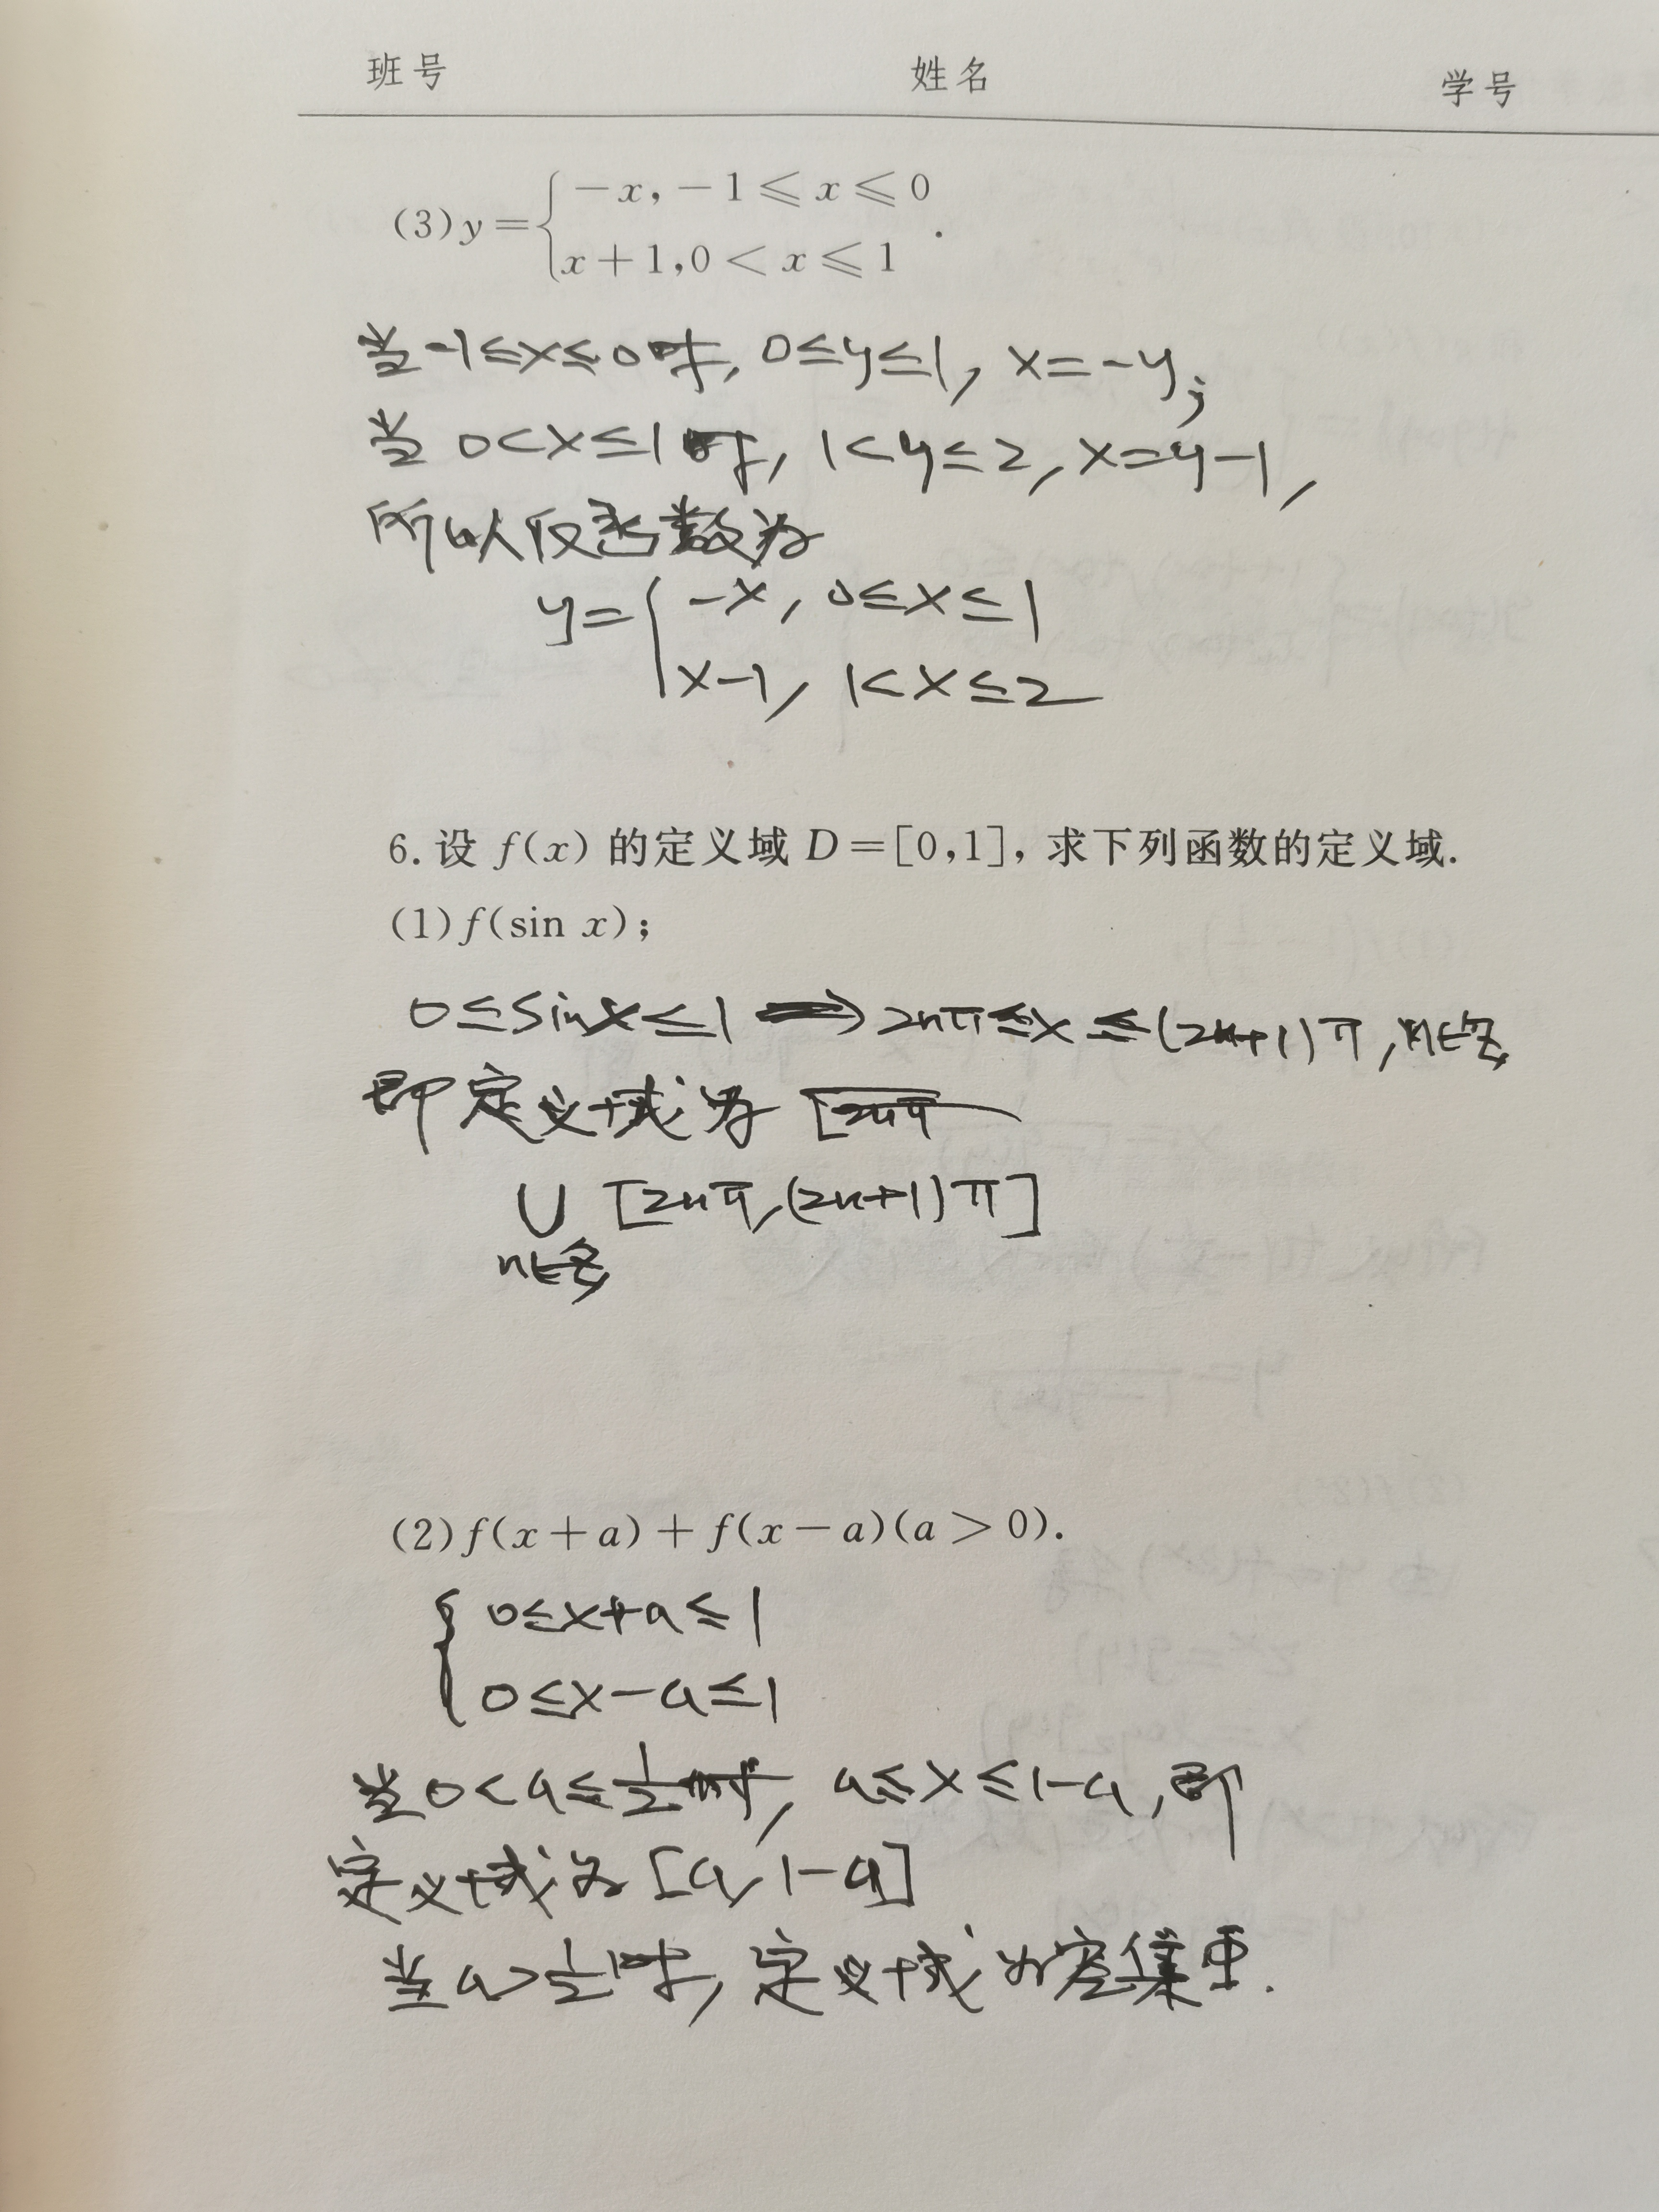 班号 姓名 学号
(3) y = { -x, -1 ⩽ x ⩽ 0
x + 1, 0 < x ⩽ 1 .
当 -1≤x≤0时, 0≤y≤1, x=-y;
当 0<x≤1时, 1<y≤2, x=y-1,
所以反函数为
y={ -x, 0≤x≤1
x-1, 1<x≤2
6. 设 f(x) 的定义域 D=[0,1], 求下列函数的定义域.
(1) f(sin x);
0≤sinx≤1 ⟹ 2nπ≤x≤(2n+1)π, n∈Z,
即定义域为
∪ [2nπ, (2n+1)π]
n∈Z
(2) f(x+a)+f(x-a)(a>0).
{ 0≤x+a≤1
0≤x-a≤1
当0<a≤1/2时, a≤x≤1-a, 即
定义域为[a, 1-a]
当a>1/2时, 定义域为空集∅.